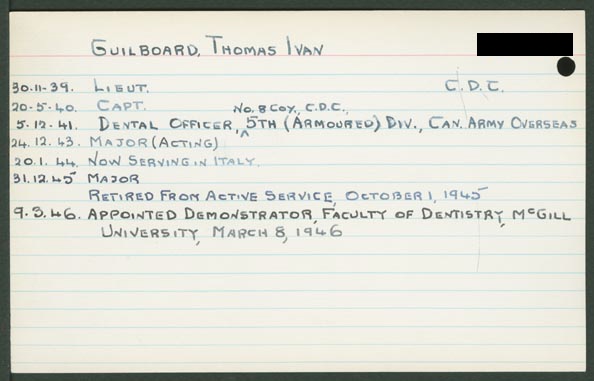 GUILBOARD, THOMAS IVAN
30.11.39. LIEUT. C.D.C.
20.5.40. CAPT. No. 8 COY., C.D.C.,
5.12.41. DENTAL OFFICER, 5TH (ARMOURED) DIV., CAN. ARMY OVERSEAS
24.12.43. MAJOR (ACTING)
20.1.44. NOW SERVING IN ITALY.
31.12.45 MAJOR
RETIRED FROM ACTIVE SERVICE, OCTOBER 1, 1945
9.3.46. APPOINTED DEMONSTRATOR, FACULTY OF DENTISTRY, McGILL
UNIVERSITY, MARCH 8, 1946